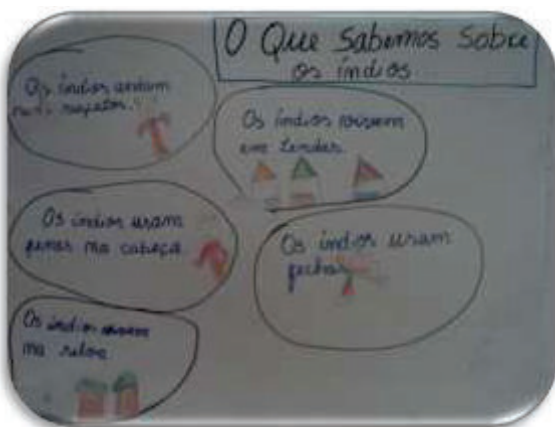 O Que Sabemos Sobre
os índios
Os índios andam
Os índios vivem
em tendas
Os índios usam
penas na cabeça
Os índios usam
fechas
Os índios vivem
na selva